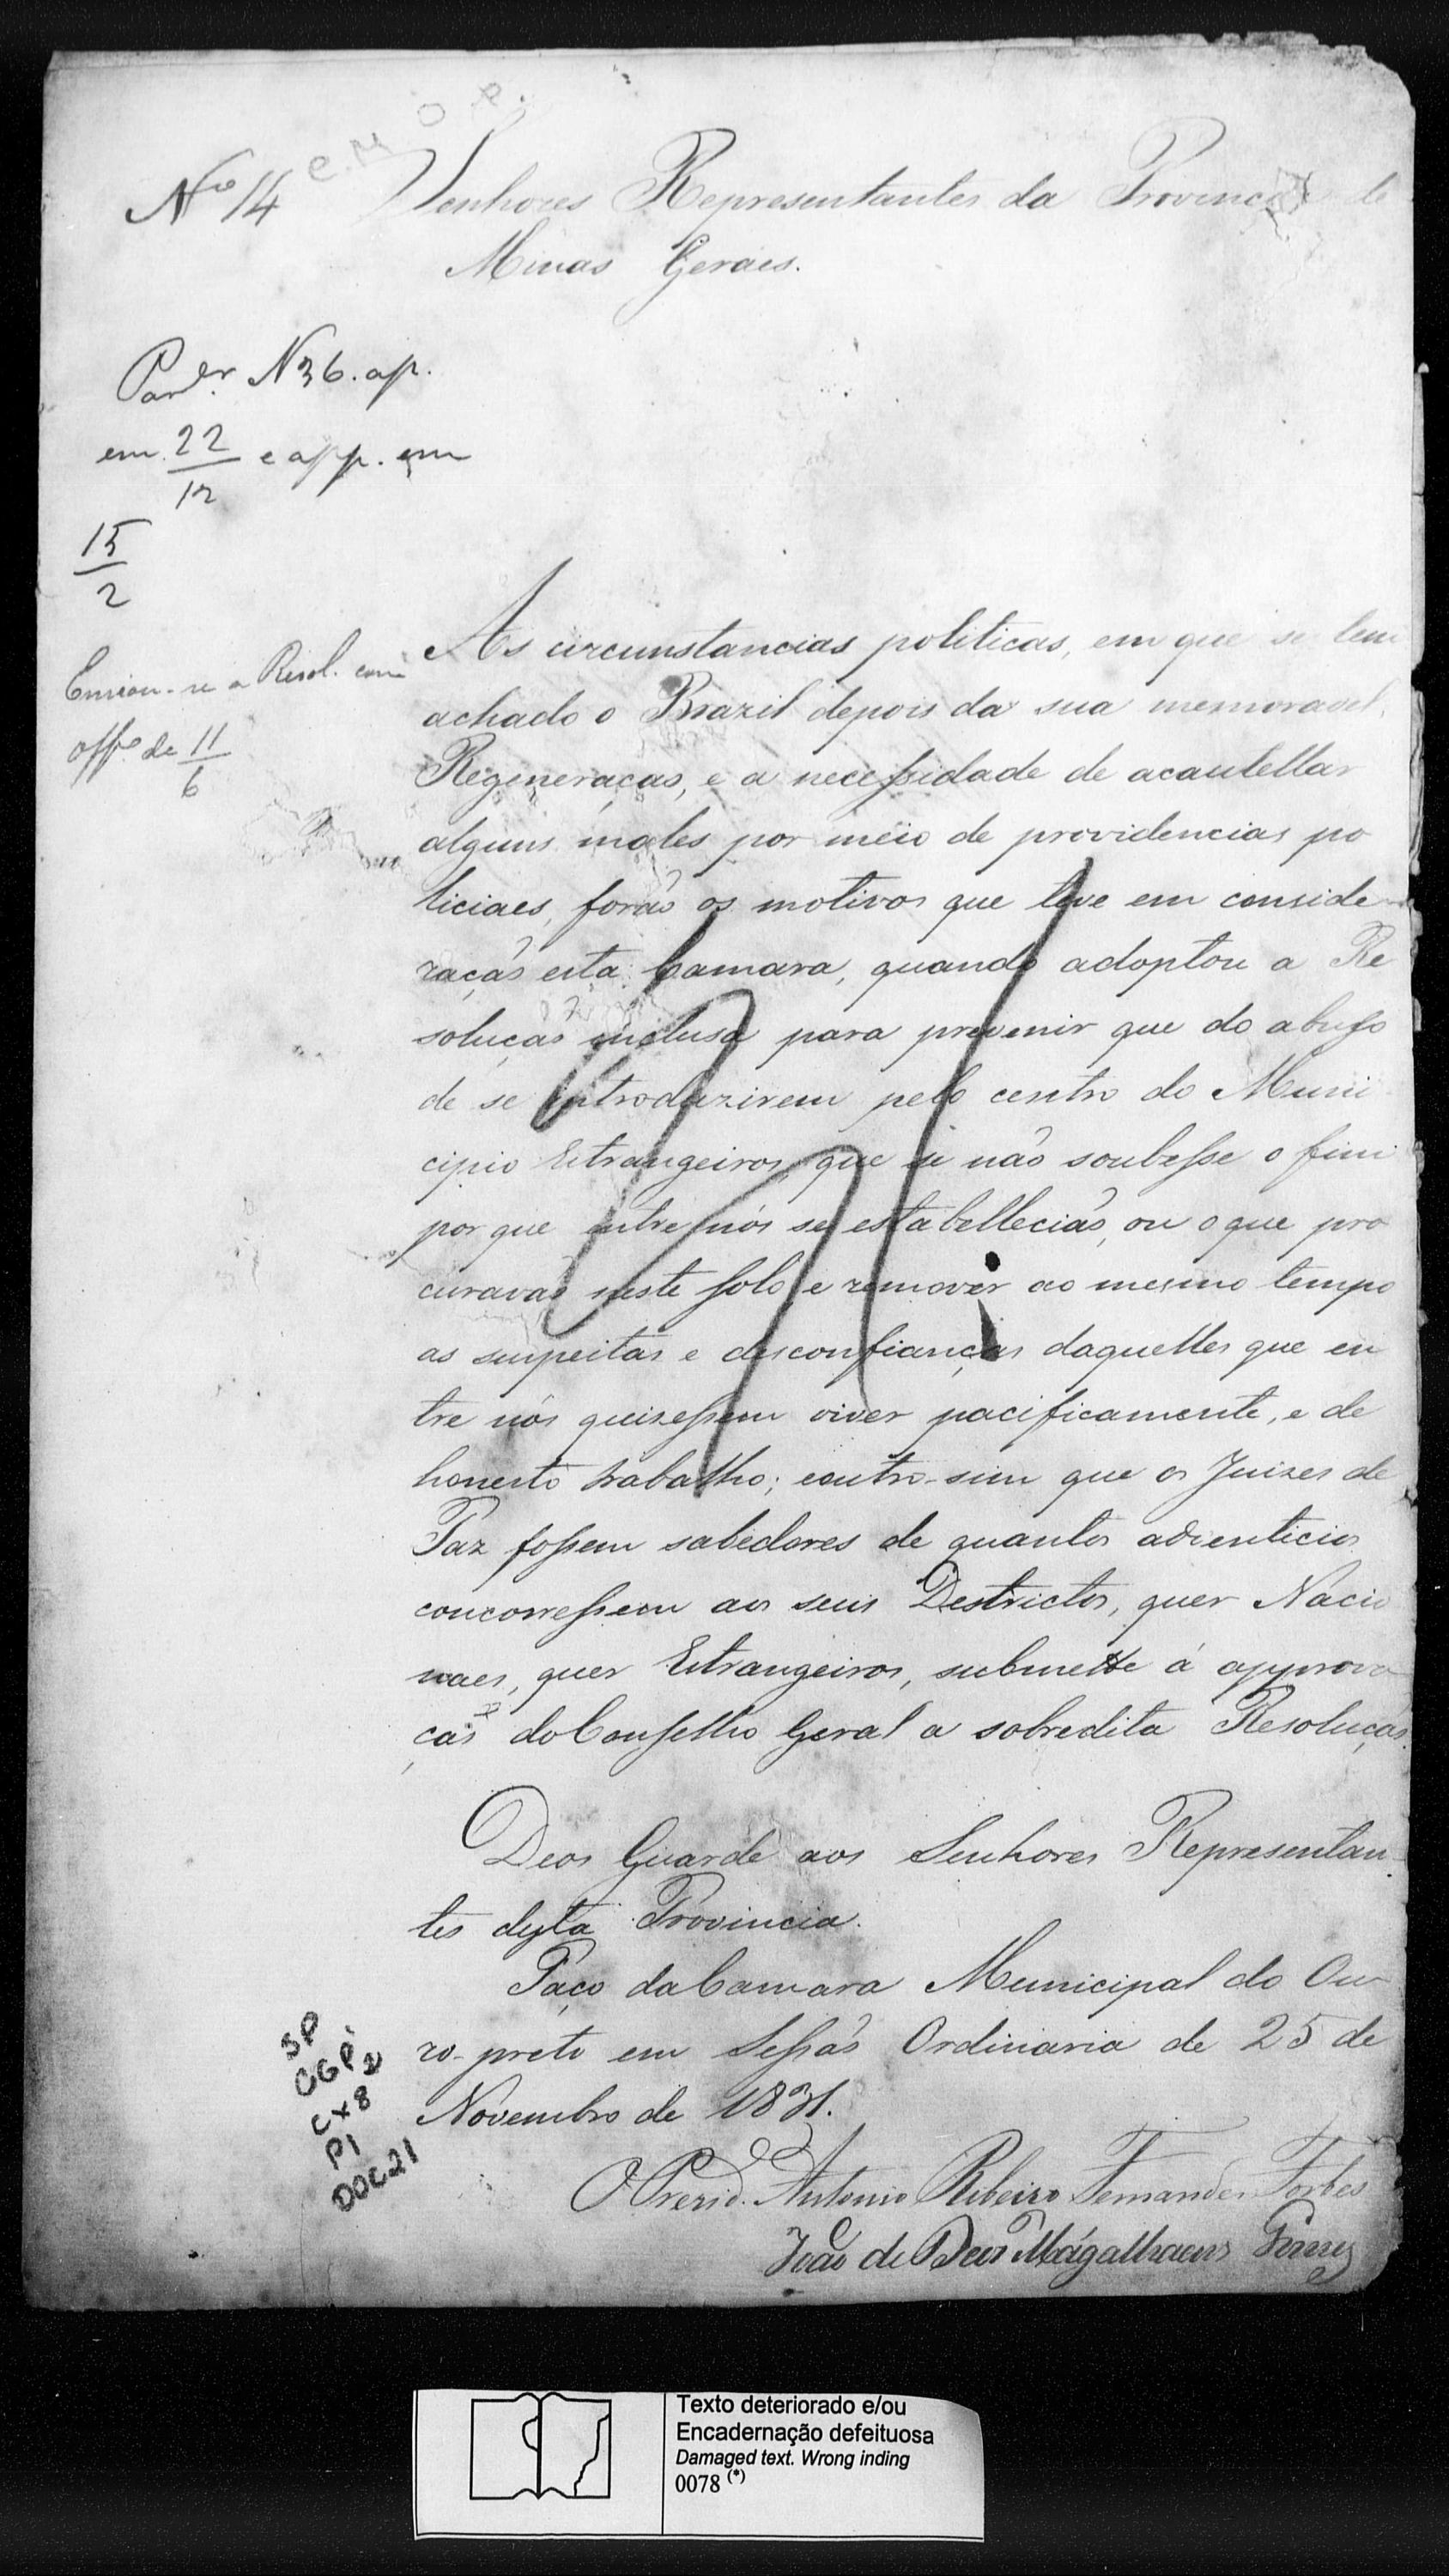 C M O P.
Nº 14
Senhores Representantes da Provincia de
Minas Geraes.
Parer. N 36. ap.
em 22/12 e app. em
15/2
Enviou-se a Resol. com
offº de 11/6
As circunstancias politicas, em que se tem
achado o Brazil depois da sua memoravel
Regeneração, e a necessidade de acautellar
alguns males por meio de providencias po
liciaes, forão os motivos que teve em conside
ração esta Camara, quando adoptou a Re
solução inclusa para prevenir que do abuso
de se introduzirem pelo centro do Muni
cipio Estrangeiros, que se não soubesse o fim
por que entre nós se estabellecião, ou o que pro
curavão neste solo, e remover ao mesmo tempo
as suspeitas e desconfianças daquelles que en
tre nós quisessem viver pacificamente, e de
honesto trabalho; eoutro-sim que os Juizes de
Paz fossem sabedores de quantos adventicios
concorressem aos seus Destrictos, quer Nacio
naes, quer Estrangeiros, submette á approva
ção do Conselho Geral a sobredita Resolução.
Deos Guarde aos Senhores Representan
tes desta Provincia.
Paço da Camara Municipal do Ou
ro-preto em Sessão Ordinaria de 25 de
Novembro de 1831.
O Prezid. Antonio Ribeiro Fernandes Forbes
João de Deos Magalhaens Gomes
SP
CGP2
CX8
P1
DOC21
Texto deteriorado e/ou
Encadernação defeituosa
Damaged text. Wrong inding
0078 (*)